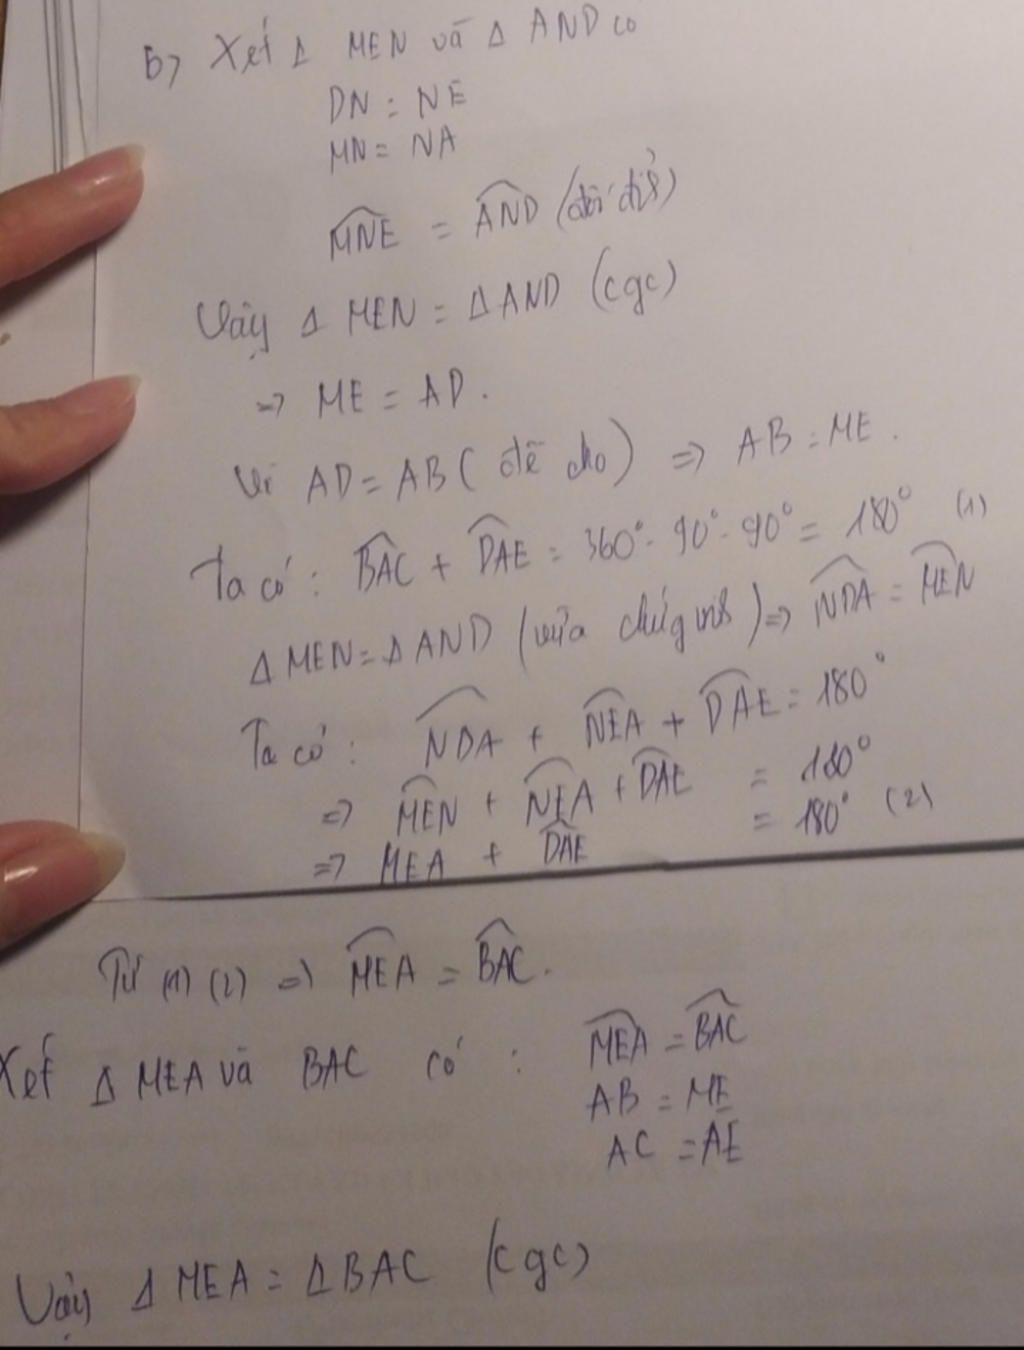 b) Xét Δ MEN và Δ AND có
DN = NE
MN = NA
MNE = AND (đối đỉnh)
Vậy Δ MEN = Δ AND (cgc)
=> ME = AD.
Vì AD = AB (đề cho) => AB = ME.
Ta có: BAC + DAE = 360° - 90° - 90° = 180° (1)
Δ MEN = Δ AND (vừa chứng mih) => NDA = MEN
Ta có: NDA + NEA + DAE = 180°
=> MEN + NEA + DAE = 180°
=> MEA + DAE = 180° (2)
Từ (1) (2) => MEA = BAC.
Xét Δ MEA và BAC có : MEA = BAC
AB = ME
AC = AE
Vậy Δ MEA = Δ BAC (cgc)